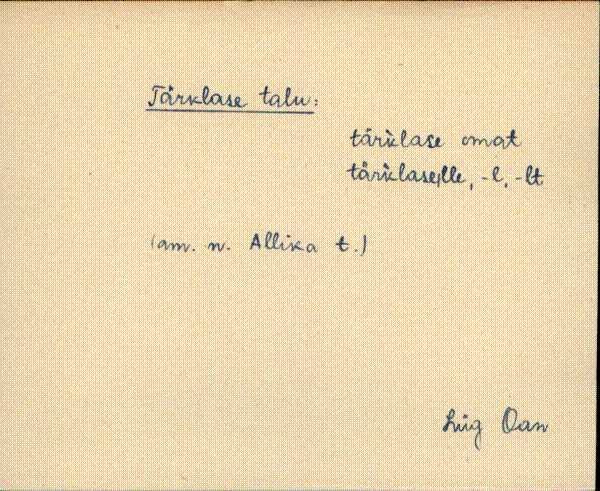 Tärklase talu:
tärk̀lase omat
tärk̀laselle, -l, -lt
(am. n. Allika t.)
Lüg Oan